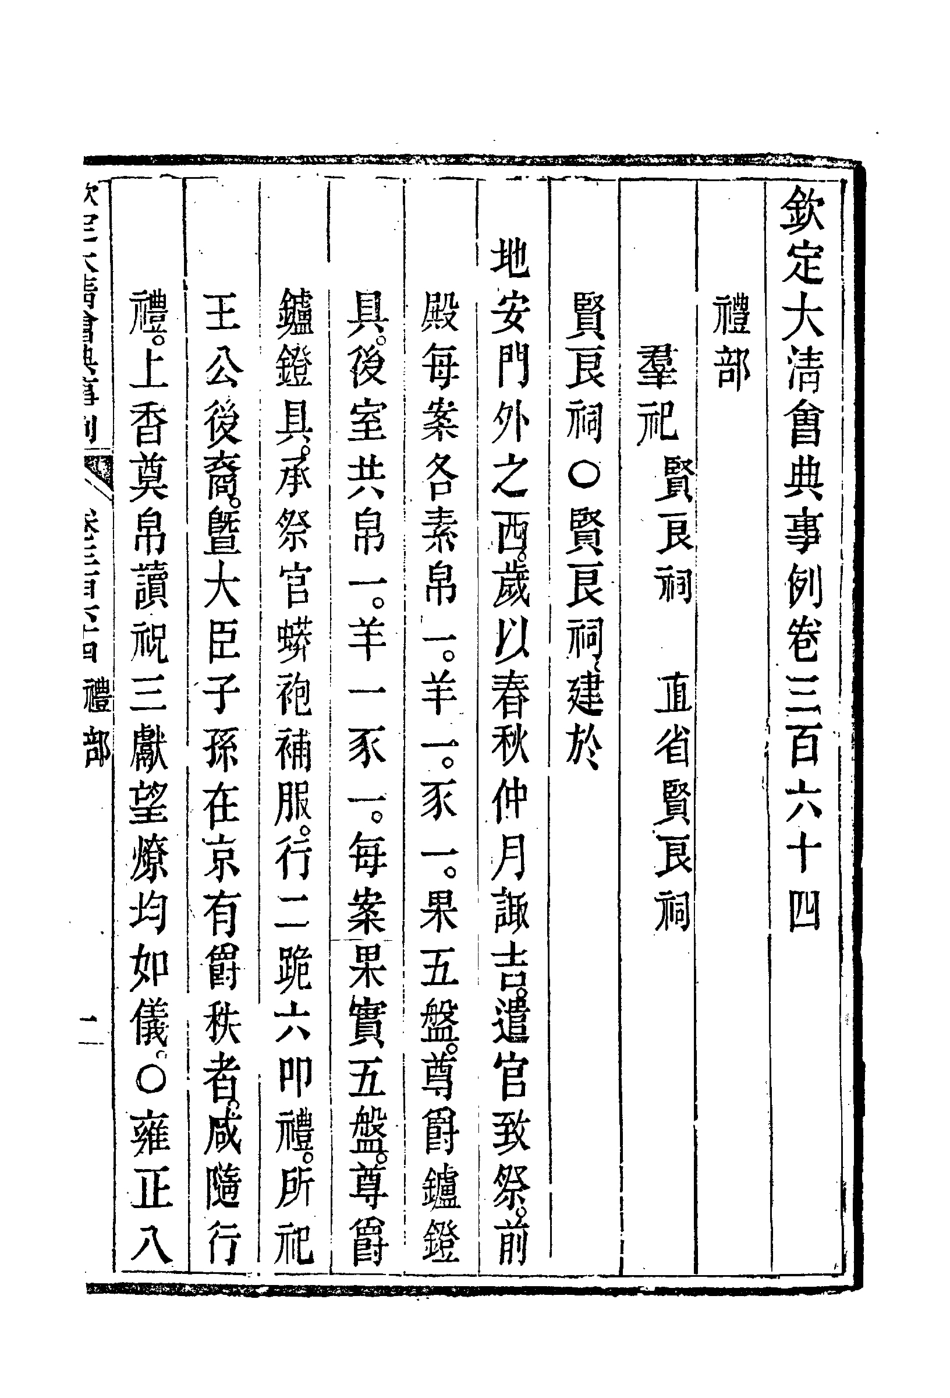 欽定大清會典事例卷三百六十四
禮部
羣祀 賢良祠 直省賢良祠
賢良祠○賢良祠建於
地安門外之西。歲以春秋仲月諏吉。遣官致祭。前
殿每案各素帛一。羊一。豕一。果五盤。尊爵鑪鐙
具。後室共帛一。羊一豕一。每案果實五盤。尊爵
鑪鐙具。承祭官蟒袍補服。行二跪六叩禮。所祀
王公後裔。曁大臣子孫在京有爵秩者。咸隨行
禮。上香奠帛讀祝三獻望燎均如儀。○雍正八
欽定大清會典事例 卷三百六十四 禮部 一